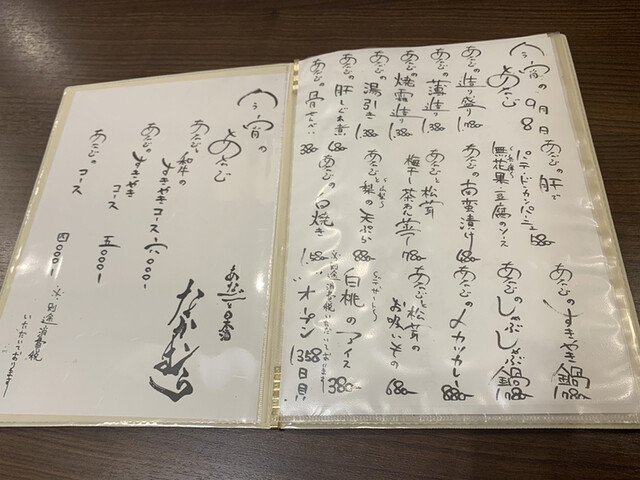 今宵の
あなご
9月8日
あなごの造り盛り 1,780-
あなごの薄造り 1,380-
あなごの焼霜造り 1,380-
あなごの湯引き 1,380-
あなごの肝しぐれ煮 380-
あなごの骨せんべい 380-
あなごの肝で
パテ・ド・カンパーニュ
無花果・豆腐のソース
あなごの南蛮漬け 680-
あなごと松茸
梅干し茶わん蒸し 780-
あなごと梨の天ぷら 880-
あなごの白焼き
あなごのすきやき鍋
あなごのしゃぶしゃぶ鍋
あなごのメカツカレー 880-
あなごと松茸の
お吸いもの 680-
白桃のアイス 380-
※別途消費税いただいております
オープン1368日目!
今宵の
あなご
あなごと和牛の
すきやきコース 六〇〇〇-
あなごの
すきやき
コース 五〇〇〇-
あなごの
コース 四〇〇〇-
※別途消費税
いただいております
あなごと日本酒
なかむら